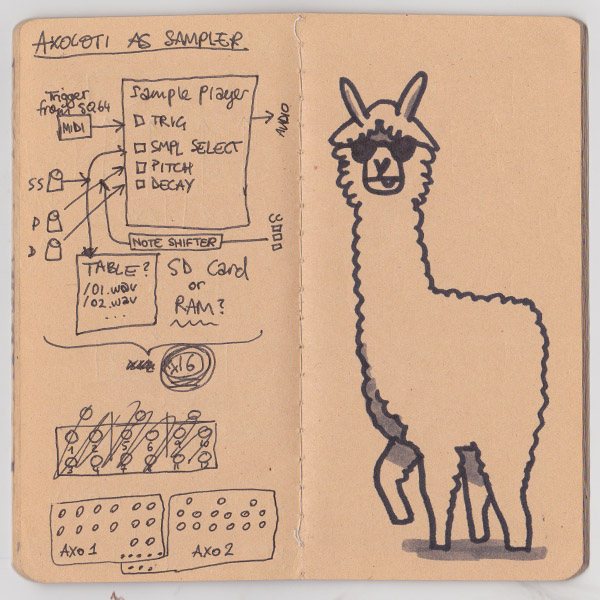 AXOLOTI AS SAMPLER
Trigger
from SQ64
MIDI
Sample Player
TRIG
SMPL SELECT
PITCH
DECAY
AUDIO
SS
P
D
NOTE SHIFTER
TABLE?
/01.wav
/02.wav
...
SD Card
or
RAM?
x16
AXO 1
AXO 2